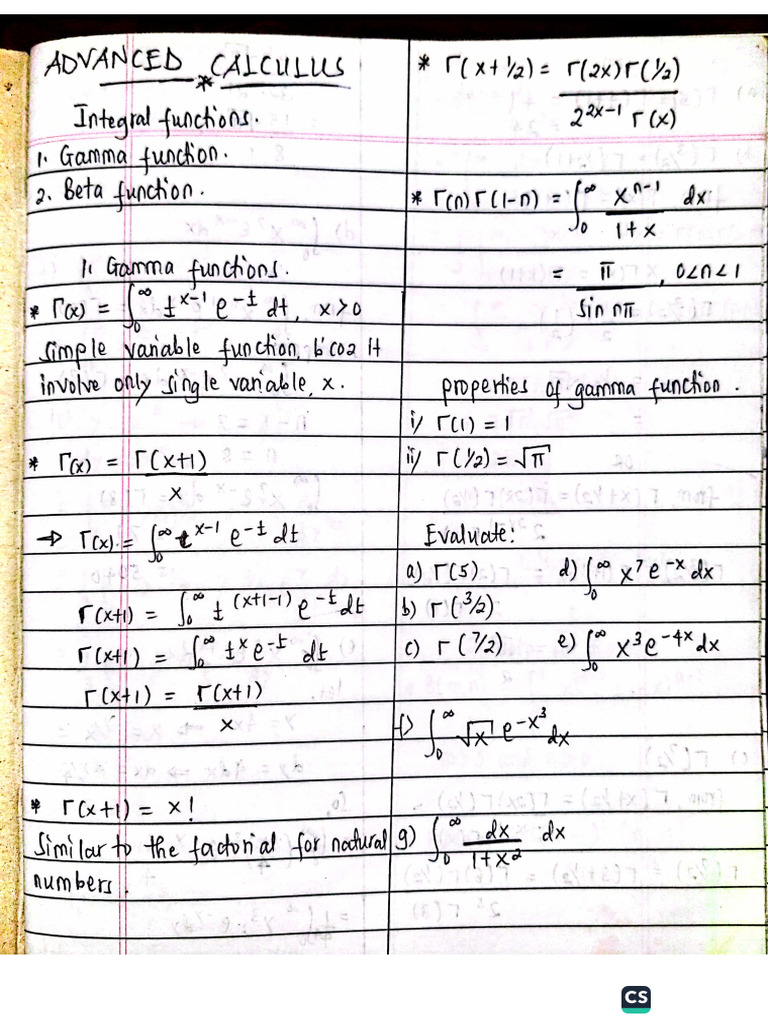 ADVANCED CALCULUS
*
Integral functions.
1. Gamma function.
2. Beta function.
1. Gamma functions.
* Γ(x) = ∫₀^∞ t^(x-1) e^(-t) dt, x>0
simple variable function, b'coz it
involve only single variable, x.
* Γ(x) = Γ(x+1)/x
→ Γ(x) = ∫₀^∞ t^(x-1) e^(-t) dt
Γ(x+1) = ∫₀^∞ t^(x+1-1) e^(-t) dt
Γ(x+1) = ∫₀^∞ t^x e^(-t) dt
Γ(x+1) = Γ(x+1)/x
* Γ(x+1) = x!
Similar to the factorial for natural
numbers.
* Γ(x+1/2) = Γ(2x)Γ(1/2) / 2^(2x-1) Γ(x)
* Γ(n)Γ(1-n) = ∫₀^∞ x^(n-1)/(1+x) dx
= π/sin nπ, 0<n<1
properties of gamma function.
i/ Γ(1) = 1
ii/ Γ(1/2) = √π
Evaluate:
a) Γ(5) d) ∫₀^∞ x^7 e^(-x) dx
b) Γ(3/2)
c) Γ(7/2) e) ∫₀^∞ x^3 e^(-4x) dx
f) ∫₀^∞ √x e^(-x^3) dx
g) ∫₀^∞ dx/(1+x^2) dx
CS